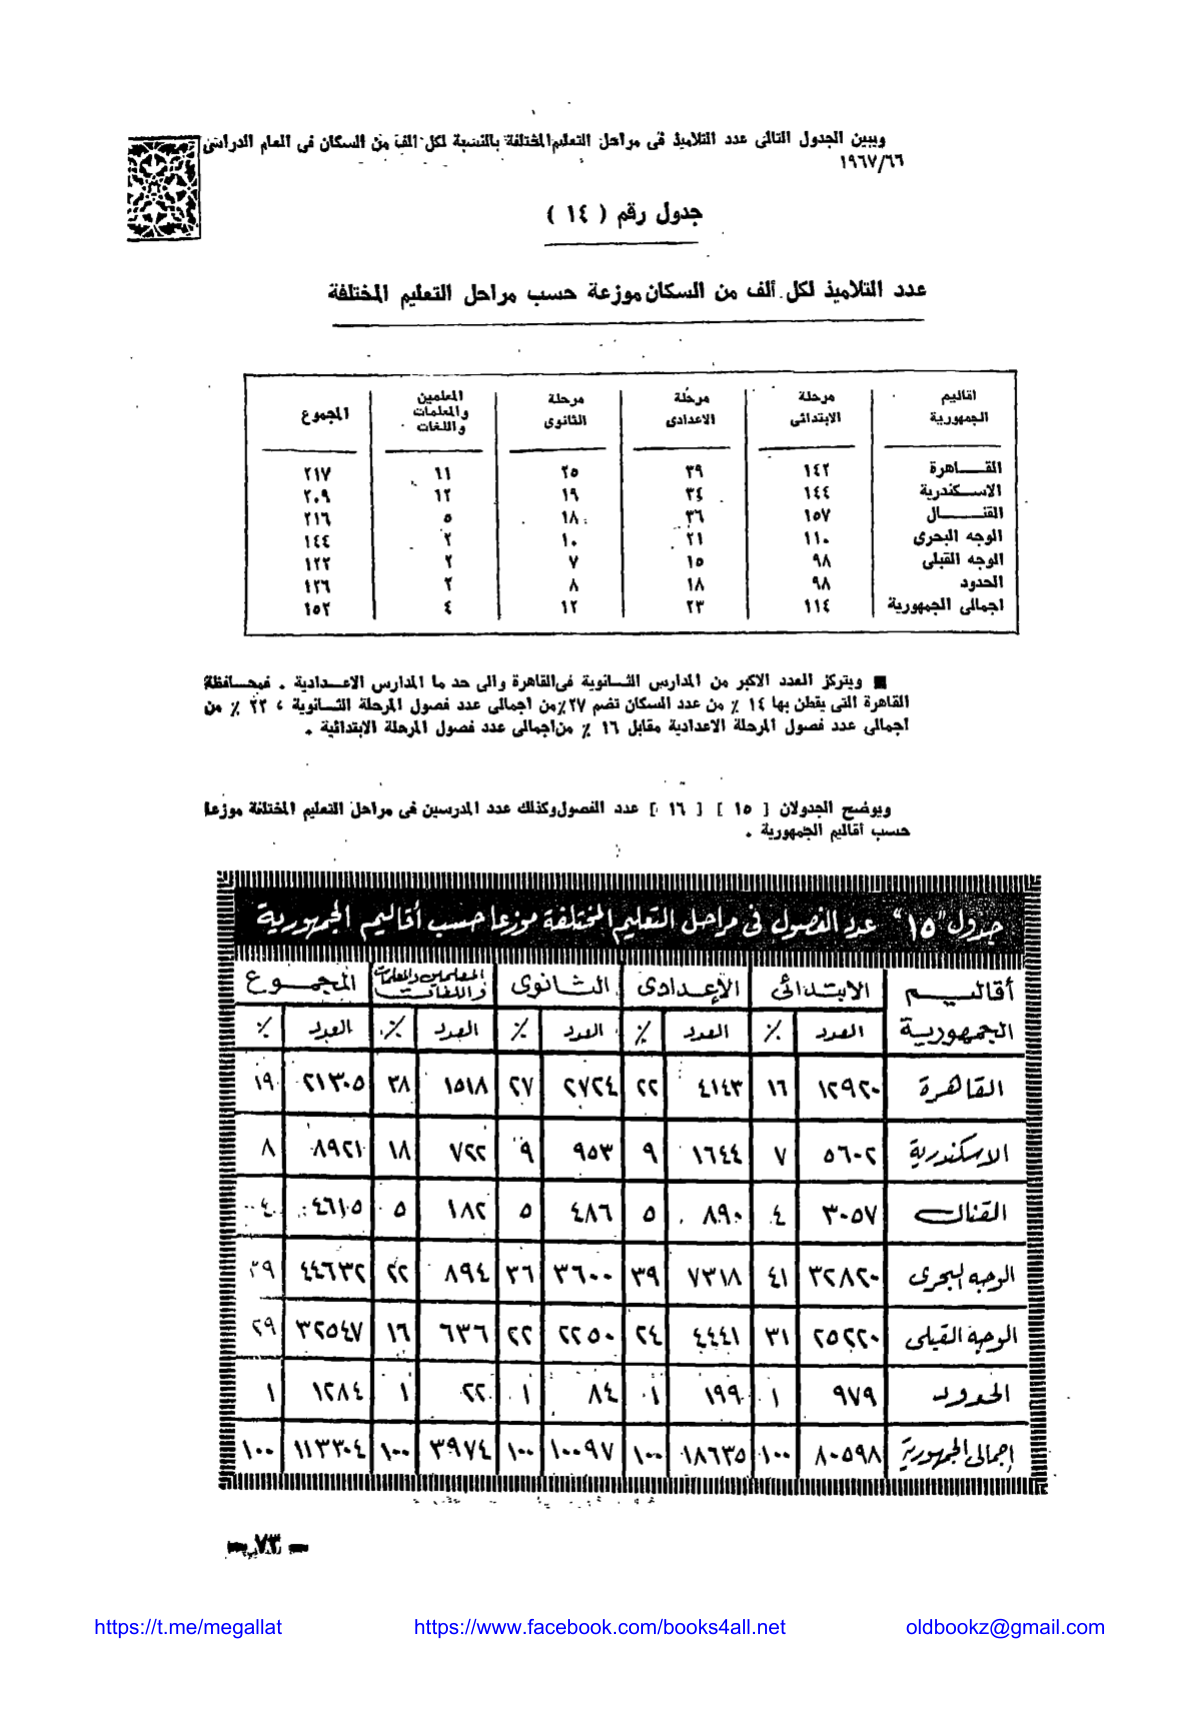 ويبين الجدول التالى عدد التلاميذ فى مراحل التعليم المختلفة بالنسبة لكل الف من السكان فى العام الدراسى
١٩٦٧/٦٦
جدول رقم ( ١٤ )
عدد التلاميذ لكل ألف من السكان موزعة حسب مراحل التعليم المختلفة
اقاليم الجمهورية | مرحلة الابتدائى | مرحلة الاعدادى | مرحلة الثانوى | المعلمين والمعلمات واللغات | المجموع
القــــاهرة | ١٤٢ | ٣٩ | ٢٥ | ١١ | ٢١٧
الاســكندرية | ١٤٤ | ٣٤ | ١٩ | ١٢ | ٢٠٩
القنــــــال | ١٥٧ | ٣٦ | ١٨ | ٥ | ٢١٦
الوجه البحرى | ١١٠ | ٢١ | ١٠ | ٢ | ١٤٤
الوجه القبلى | ٩٨ | ١٥ | ٧ | ٢ | ١٢٢
الحدود | ٩٨ | ١٨ | ٨ | ٢ | ١٢٦
اجمالى الجمهورية | ١١٤ | ٢٣ | ١٢ | ٤ | ١٥٢
■ ويتركز العدد الاكبر من المدارس الثــانوية فى القاهرة والى حد ما المدارس الاعــدادية . فمحــافظة
القاهرة التى يقطن بها ١٤ ٪ من عدد السكان تضم ٢٧٪ من اجمالى عدد فصول المرحلة الثــانوية ، ٢٢ ٪ من
اجمالى عدد فصول المرحلة الاعدادية مقابل ١٦ ٪ من اجمالى عدد فصول المرحلة الابتدائية .
ويوضح الجدولان [ ١٥ ] [ ١٦ ] عدد الفصول وكذلك عدد المدرسين فى مراحل التعليم المختلفة موزعا
حسب أقاليم الجمهورية .
جدول "١٥" عدد الفصول فى مراحل التعليم المختلفة موزعا حسب أقاليم الجمهورية
أقاليم الجمهورية | الابتدائى | الإعدادى | الثانوى | المعلمين والمعلمات واللغات | المجموع
العدد | ٪ | العدد | ٪ | العدد | ٪ | العدد | ٪ | العدد | ٪
القاهرة | ١٢٩٢٠ | ١٦ | ٤١٤٣ | ٢٢ | ٢٧٢٤ | ٢٧ | ١٥١٨ | ٣٨ | ٢١٣٠٥ | ١٩
الاسكندرية | ٥٦٠٢ | ٧ | ١٦٤٤ | ٩ | ٩٥٣ | ٩ | ٧٢٢ | ١٨ | ٨٩٢١ | ٨
القنال | ٣٠٥٧ | ٤ | ٨٩٠ | ٥ | ٤٨٦ | ٥ | ١٨٢ | ٥ | ٤٦١٥ | ٤
الوجه البحرى | ٣٢٨٢٠ | ٤١ | ٧٣١٨ | ٣٩ | ٣٦٠٠ | ٣٦ | ٨٩٤ | ٢٢ | ٤٤٦٣٢ | ٣٩
الوجه القبلى | ٢٥٢٢٠ | ٣١ | ٤٤٤١ | ٢٤ | ٢٢٥٠ | ٢٢ | ٦٣٦ | ١٦ | ٣٢٥٤٧ | ٢٩
الحدود | ٩٧٩ | ١ | ١٩٩ | ١ | ٨٤ | ١ | ٢٢ | ١ | ١٢٨٤ | ١
إجمالى الجمهورية | ٨٠٥٩٨ | ١٠٠ | ١٨٦٣٥ | ١٠٠ | ١٠٠٩٧ | ١٠٠ | ٣٩٧٤ | ١٠٠ | ١١٣٣٠٤ | ١٠٠
— ٧٣ —
https://t.me/megallat https://www.facebook.com/books4all.net oldbookz@gmail.com